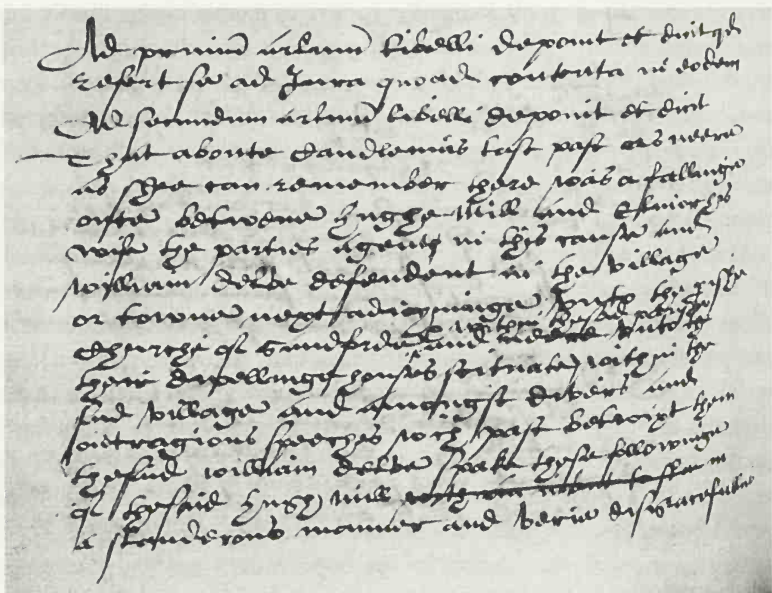 Ad primu' ar'lum libelli deponit et dicit qd
refert se ad Jura quoad contenta in eodem
Ad secundum ar'lum libelli deponit et dicit
That aboute Candlemas last past or neere
as shee can remember there was a fallinge
oute betwene Hughe Mill and
wife the parties agents in this cause and
William Delve defendent in the village
or towne next adioyninge unto the p'ishe
Churche of Sandforde within thesaid parishe and neere unto the
their dwellinge houses scituate within the
said village and amongst divers and
outragious speeches wch past betwixt them
thesaid William Delve spake these followinge
of thesaid Hugh Mill in
a slanderous manner and verie disgracefullie